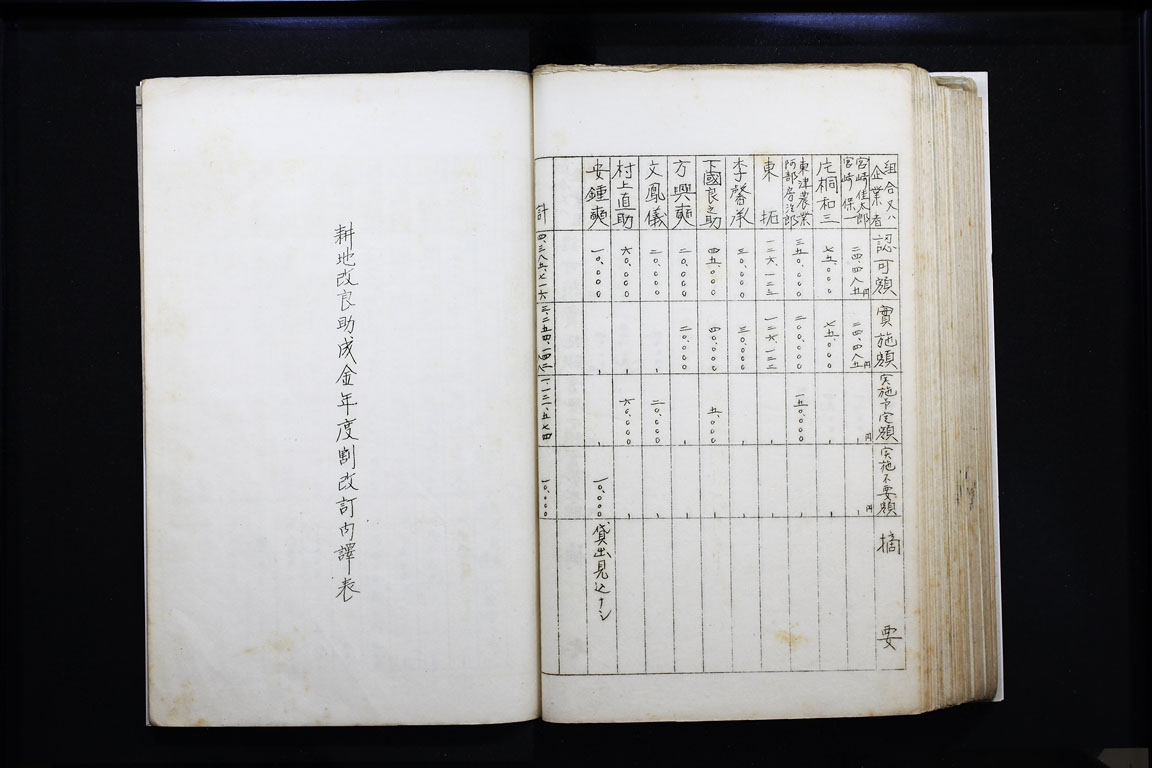 組合又ハ企業者 認可額 實施額 実施予定額 実施不要額 摘要
宮崎佳太郎 宮崎保一 二四、四八五円 二四、四八五円 、円 、円
片桐和三 七五、〇〇〇 七五、〇〇〇 、 、
東津農業 阿部房次郎 三五〇、〇〇〇 二〇〇、〇〇〇 一五〇、〇〇〇 、
東拓 一二六、一二二 一二六、一二二 、 、
李馨承 三〇、〇〇〇 三〇、〇〇〇 、 、
下國良之助 四五、〇〇〇 四〇、〇〇〇 五、〇〇〇 、
方興奭 二〇、〇〇〇 二〇、〇〇〇 、 、
文鳳儀 二〇、〇〇〇 、 二〇、〇〇〇 、
村上直助 六〇、〇〇〇 、 六〇、〇〇〇 、
安鍾奭 一〇、〇〇〇 、 、 一〇、〇〇〇 貸出見込ナシ
計 四、三八五、七一六 三、二五四、一四二 一、一二一、五七四 一〇、〇〇〇
耕地改良助成金年度割改訂内譯表